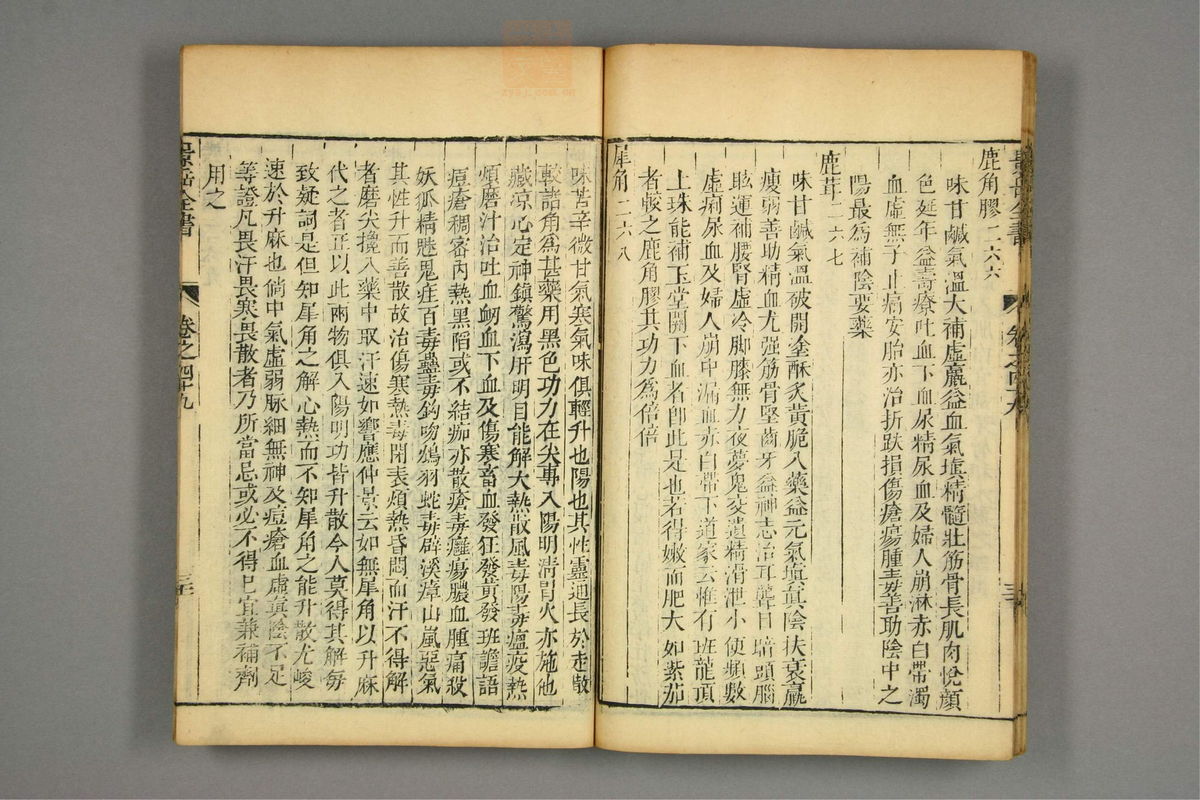 鹿角膠二六六
味甘鹹氣溫大補虛羸益血氣塡精髓壯筋骨長肌肉悅顏
色延年益壽療吐血下血尿精尿血及婦人崩淋赤白帶濁
血虛無子止痛安胎亦治折跌損傷瘡瘍腫毒善助陰中之
陽最爲補陰要藥
鹿茸二六七
味甘鹹氣溫破開塗酥炙黃脆入藥益元氣塡眞陰扶衰羸
瘦弱善助精血尤强筋骨堅齒牙益神志治耳聾目暗頭腦
眩運補腰腎虛冷脚膝無力夜夢鬼交遺精滑泄小便頻數
虛痢尿血及婦人崩中漏血赤白帶下道家云惟有班龍頂
上珠能補玉堂關下血者卽此是也若得嫩而肥大如紫茄
者較之鹿角膠其功力爲倍倍
犀角二六八
味苦辛微甘氣寒氣味俱輕升也陽也其性靈通長於走散
較諸角爲甚藥用黑色功力在尖專入陽明清胃火亦施他
藏凉心定神鎮驚瀉肝明目能解大熱散風毒陽毒瘟疫熱
煩磨汁治吐血衂血下血及傷寒畜血發狂發黃發班譫語
痘瘡稠密內熱黑陷或不結痂亦散瘡毒癰瘍膿血腫痛殺
妖狐精魅鬼疰百毒蠱毒鈎吻鴆羽蛇毒辟溪瘴山嵐惡氣
其性升而善散故治傷寒熱毒閉表煩熱昏悶而汗不得解
者磨尖攙入藥中取汗速如響應仲景云如無犀角以升麻
代之者正以此兩物俱入陽明功皆升散今人莫得其解每
致疑詞是但知犀角之解心熱而不知犀角之能升散尤峻
速於升麻也倘中氣虛弱脉細無神及痘瘡血虛眞陰不足
等證凡畏汗畏寒畏散者乃所當忌或必不得已宜兼補劑
用之
景岳全書
卷之四十九